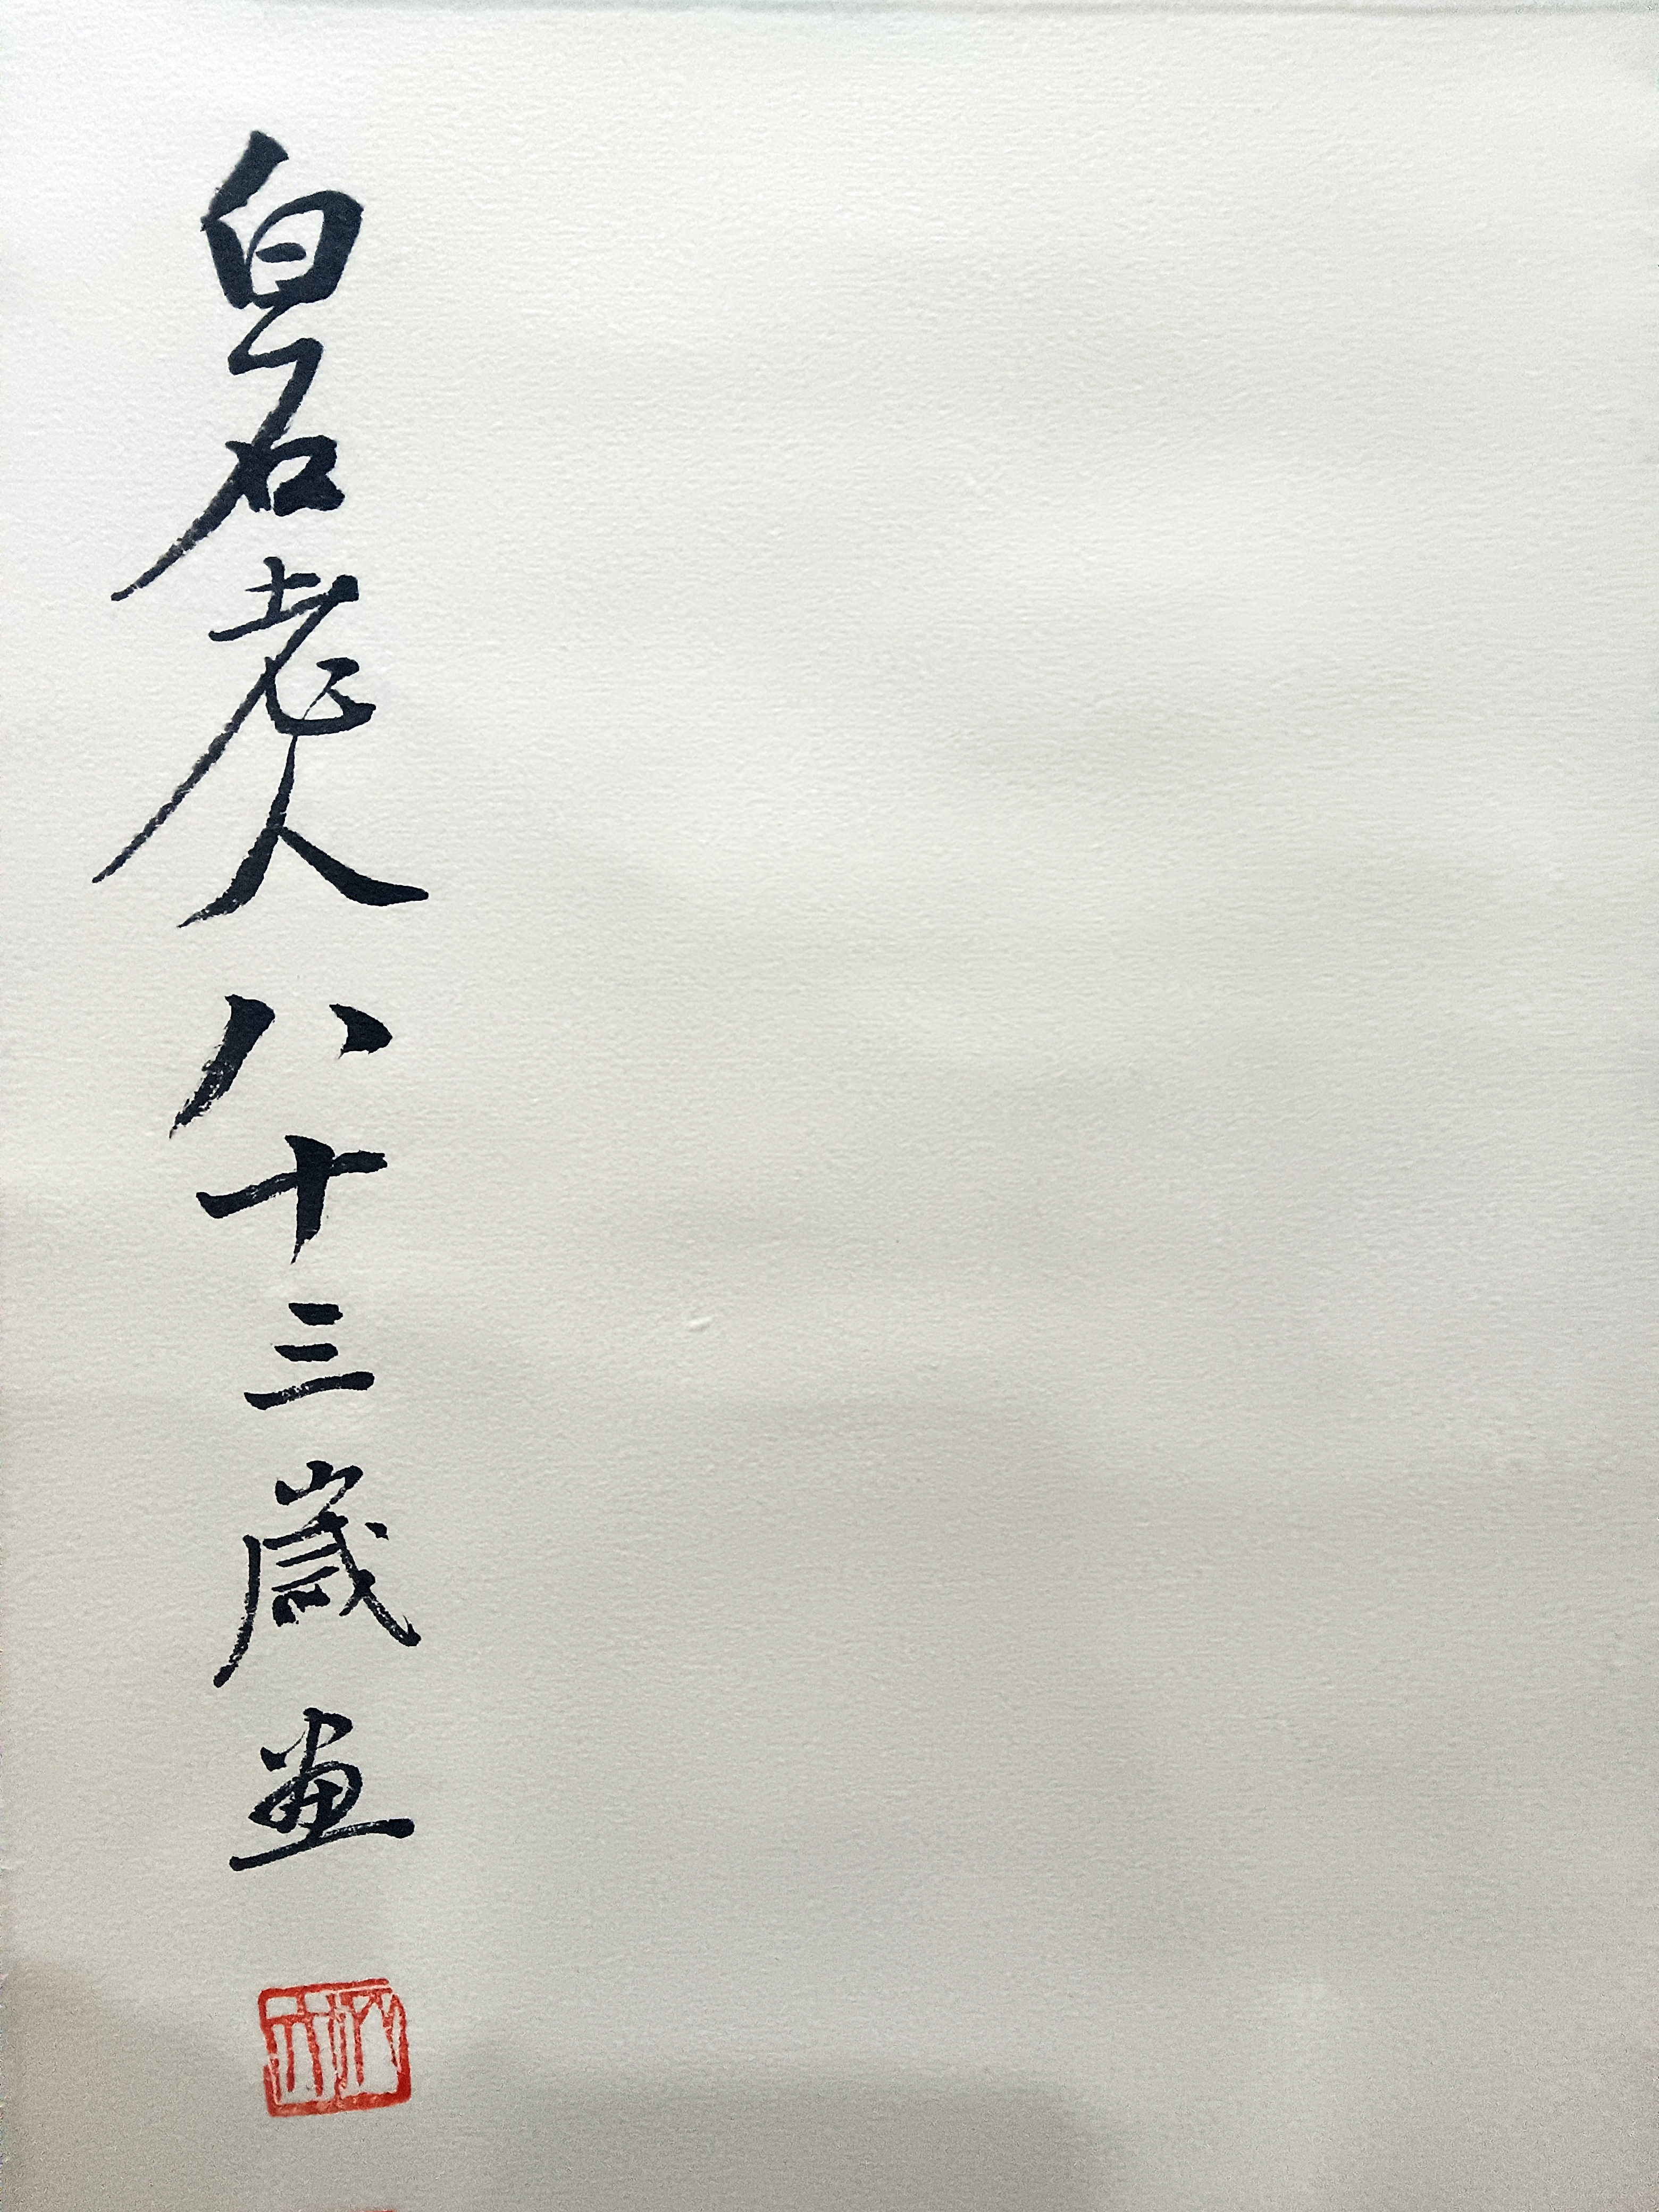 白石老人八十三歲画